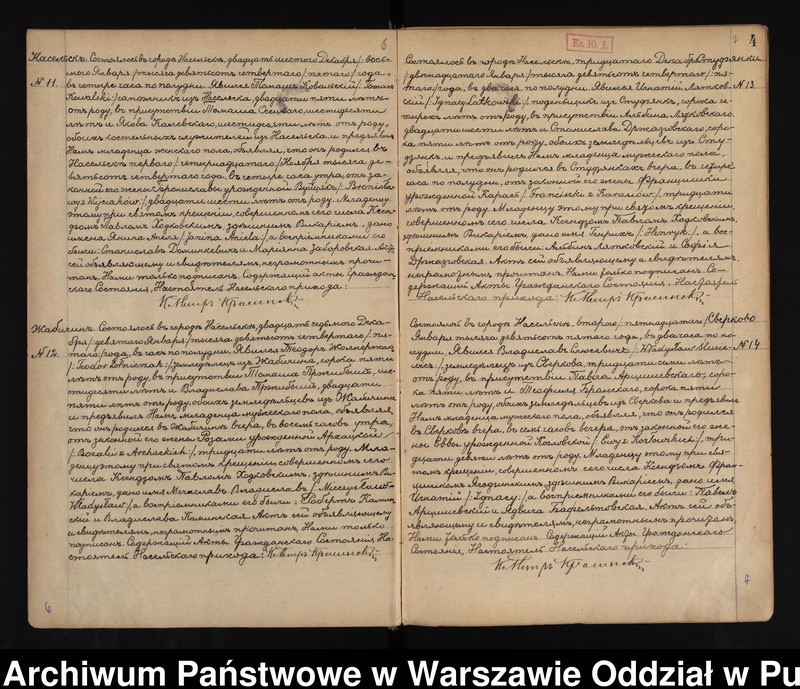 6
Насельскъ. Состоялось въ городѣ Насельскѣ, двадцать шестого Декабря /: вось-
мого Января /: тысяча девятьсотъ четвертаго /: пятаго / года,
№ 11. въ четыре часа по полудни. Явился Томашъ Ковальскій /: Tomasz
Kowalski /: сапожникъ изъ Насельска, двадцати пяти лѣтъ
отъ роду, въ присутствіи Томаша шестидесяти
лѣтъ и Якова шестидесяти лѣтъ отъ роду,
обоихъ костельныхъ служителей изъ Насельска и предъявилъ
Намъ младенца женскаго пола, объявляя, что онъ родился въ
Насельскѣ перваго /: четырнадцатаго / Ноября тысяча де-
вятьсотъ четвертаго года, въ четыре часа утра, отъ за-
конной его жены Брониславы урожденной /: Bronisła-
wy z Wójciaków /: двадцати шести лѣтъ отъ роду. Младенцу
этому при святомъ крещеніи, совершенномъ сего числа Ксен-
дзомъ Павломъ Ходковскимъ, здѣшнимъ Викаріемъ, дано
имена Янина Анеля /: Janina Aniela /: а воспріемниками его
были: Станиславъ Доминкевичъ и Маріянна Заборовская. Актъ
сей объявляющему и свидѣтелямъ, неграмотнымъ прочи-
танъ, Нами только подписанъ. Содержащій акты Граждан-
скаго Состоянія, Настоятель Насельскаго прихода:
Жабичинъ. Состоялось въ городѣ Насельскѣ, двадцать седьмого Дека-
бря /: девятаго Января /: тысяча девятьсотъ четвертаго /: пя-
№ 12. таго / года, въ часъ по полудни. Явился Теодоръ Жолнержакъ
/: Teodor Żołnierzak :/ земледѣлецъ изъ Жабичина, сорока пяти
лѣтъ отъ роду, въ присутствіи Томаша шес-
тидесяти лѣтъ и Владислава двадцати
пяти лѣтъ отъ роду, обоихъ земледѣльцевъ изъ Жабичина
и предъявилъ Намъ младенца мужескаго пола, объявляя,
что онъ родился въ Жабичинѣ вчера, въ восемь часовъ утра,
отъ законной его жены Розаліи урожденной Архацкой
/: Rozalii z Archackich /: тридцати лѣтъ отъ роду. Мла-
денцу этому при святомъ крещеніи, совершенномъ сего
числа Ксендзомъ Павломъ Ходковскимъ, здѣшнимъ Ви-
каріемъ, дано имя Мечиславъ Владиславъ /: Mieczysław
Władysław / а воспріемниками его были: Робертъ Камин-
скій и Владислава Каминская. Актъ сей объявляющему
и свидѣтелямъ, неграмотнымъ прочитанъ, Нами только
подписанъ. Содержащій Акты Гражданскаго Состоянія, На-
стоятель Насельскаго прихода:
6
4
Состоялось въ городѣ Насельскѣ, тридцатаго Декабря Студзянки
/: двѣнадцатаго Января /: тысяча девятьсотъ четвертаго /: пя-
таго / года, въ два часа по полудни. Явился Игнатій Лятков- № 13
скій /: Ignacy Latkowski :/ поденщикъ изъ Студзянкъ, сорока че-
тырехъ лѣтъ отъ роду, въ присутствіи Альбина Лятковскаго,
двадцати шести лѣтъ и Станислава Држазговскаго, соро-
ка пяти лѣтъ отъ роду, обоихъ земледѣльцевъ изъ Сту-
дзянкъ и предъявилъ Намъ младенца мужескаго пола,
объявляя, что онъ родился въ Студзянкахъ вчера, въ четыре
часа по полудни, отъ законной его жены Францишки
урожденной Карась /: Franciszki z Karasiów /: тридцати
лѣтъ отъ роду. Младенцу этому при святомъ крещеніи,
совершенномъ сего числа Ксендзомъ Павломъ Ходковскимъ,
здѣшнимъ Викаріемъ, дано имя Генрикъ /: Henryk :/ а вос-
пріемниками его были: Альбинъ Лятковскій и Софія
Држазговская. Актъ сей объявляющему и свидѣтелямъ,
неграмотнымъ прочитанъ, Нами только подписанъ. Со-
держащій Акты Гражданскаго Состоянія, Настоятель
Насельскаго прихода:
Состоялось въ городѣ Насельскѣ, второго /: пятнадцатаго / Сверково
Января тысяча девятьсотъ пятаго года, въ два часа по по-
лудни. Явился Владиславъ /: Władysław № 14
/: земледѣлецъ изъ Сверкова, тридцати семи лѣтъ
отъ роду, въ присутствіи Павла Арцишевскаго, соро-
ка пяти лѣтъ и Теофиля сорока пяти
лѣтъ отъ роду, обоихъ земледѣльцевъ изъ Сверкова и предъявилъ
Намъ младенца мужескаго пола, объявляя, что онъ родился
въ Сверковѣ вчера, въ семь часовъ вечера, отъ законной его же-
ны Еввы урожденной Козловской /: Ewy z Kozłowskich /: три-
дцати девяти лѣтъ отъ роду. Младенцу этому при свя-
томъ крещеніи, совершенномъ сего числа Ксендзомъ Фран-
цишкомъ здѣшнимъ Викаріемъ, дано имя
Игнатій /: Ignacy :/ а воспріемниками его были: Павелъ
Арцишевскій и Ядвига Актъ сей объ-
являющему и свидѣтелямъ, неграмотнымъ прочитанъ,
Нами только подписанъ. Содержащій Акты Гражданскаго
Состоянія, Настоятель Насельскаго прихода:
Archiwum Państwowe w Warszawie Oddział w Pu